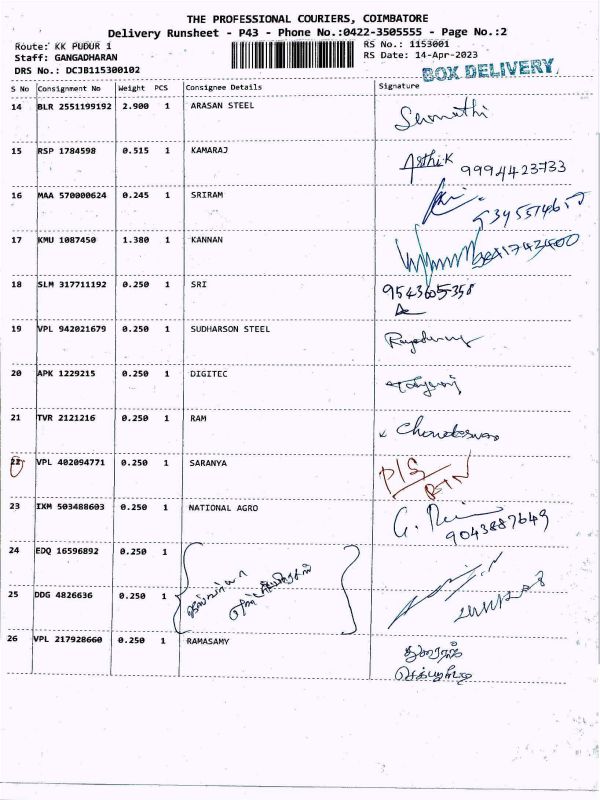 THE PROFESSIONAL COURIERS, COIMBATORE
Delivery Runsheet - P43 - Phone No.:0422-3505555 - Page No.:2
Route: KK PUDUR 1 RS No.: 1153001
Staff: GANGADHARAN RS Date: 14-Apr-2023
DRS No.: DCJB115300102 BOX DELIVERY
S No Consignment No Weight PCS Consignee Details Signature
14 BLR 2551199192 2.900 1 ARASAN STEEL
15 RSP 1784598 0.515 1 KAMARAJ
9994423733
16 MAA 570000624 0.245 1 SRIRAM
17 KMU 1087450 1.380 1 KANNAN
18 SLM 317711192 0.250 1 SRI
9543605358
19 VPL 942021679 0.250 1 SUDHARSON STEEL
20 APK 1229215 0.250 1 DIGITEC
21 TVR 2121216 0.250 1 RAM
22 VPL 402094771 0.250 1 SARANYA
23 IXM 503488603 0.250 1 NATIONAL AGRO
9043887649
24 EDQ 16596892 0.250 1
25 DDG 4826636 0.250 1
26 VPL 217928660 0.250 1 RAMASAMY